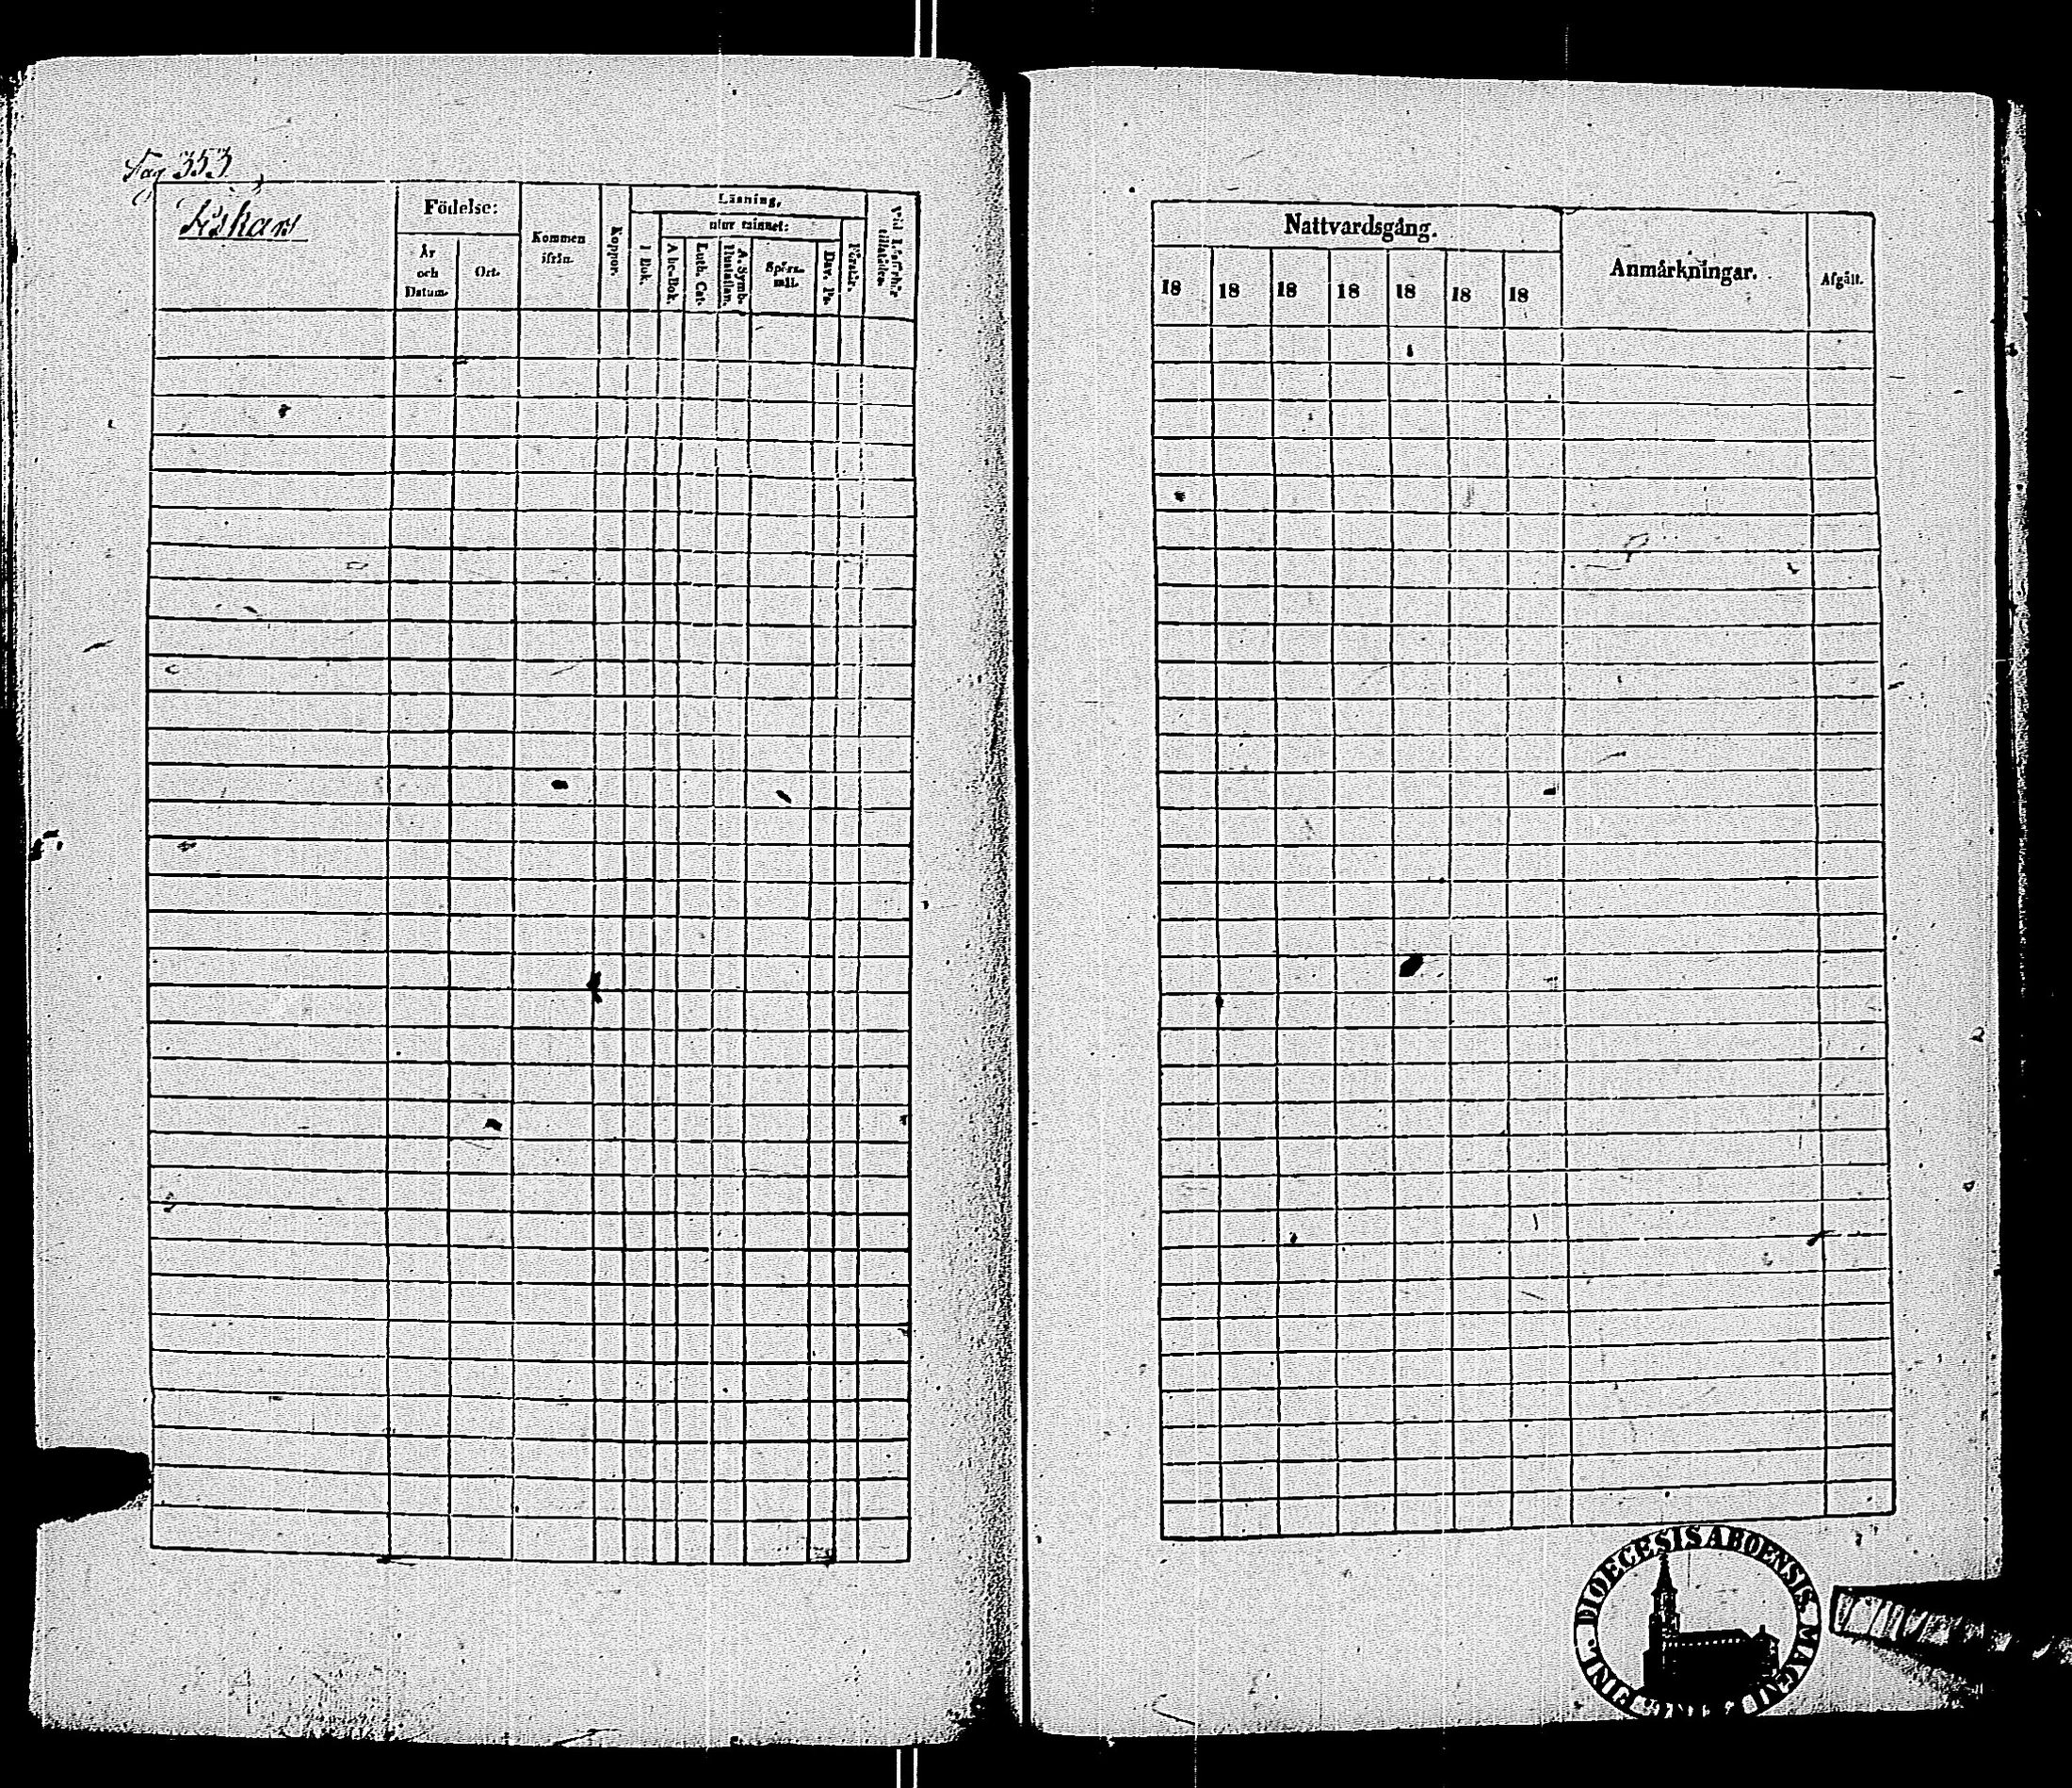 Pag 353.
Fiskars
Födelse:
År
och
Datum.
Ort.
Kommen
ifrån.
Koppor.
Läsning,
utur minnet:
I Bok.
Abc-Bok.
Luth. Cat.
A. Symb.
Hustaflan.
Spörs-
mål.
Dav. Ps.
Förstår.
Vid Läsförhör
tillstädes.
Nattvardsgång.
18 18 18 18 18 18 18
Anmärkningar.
Afgått.
FINL. DIOECESIS ABOENSIS MAGNI